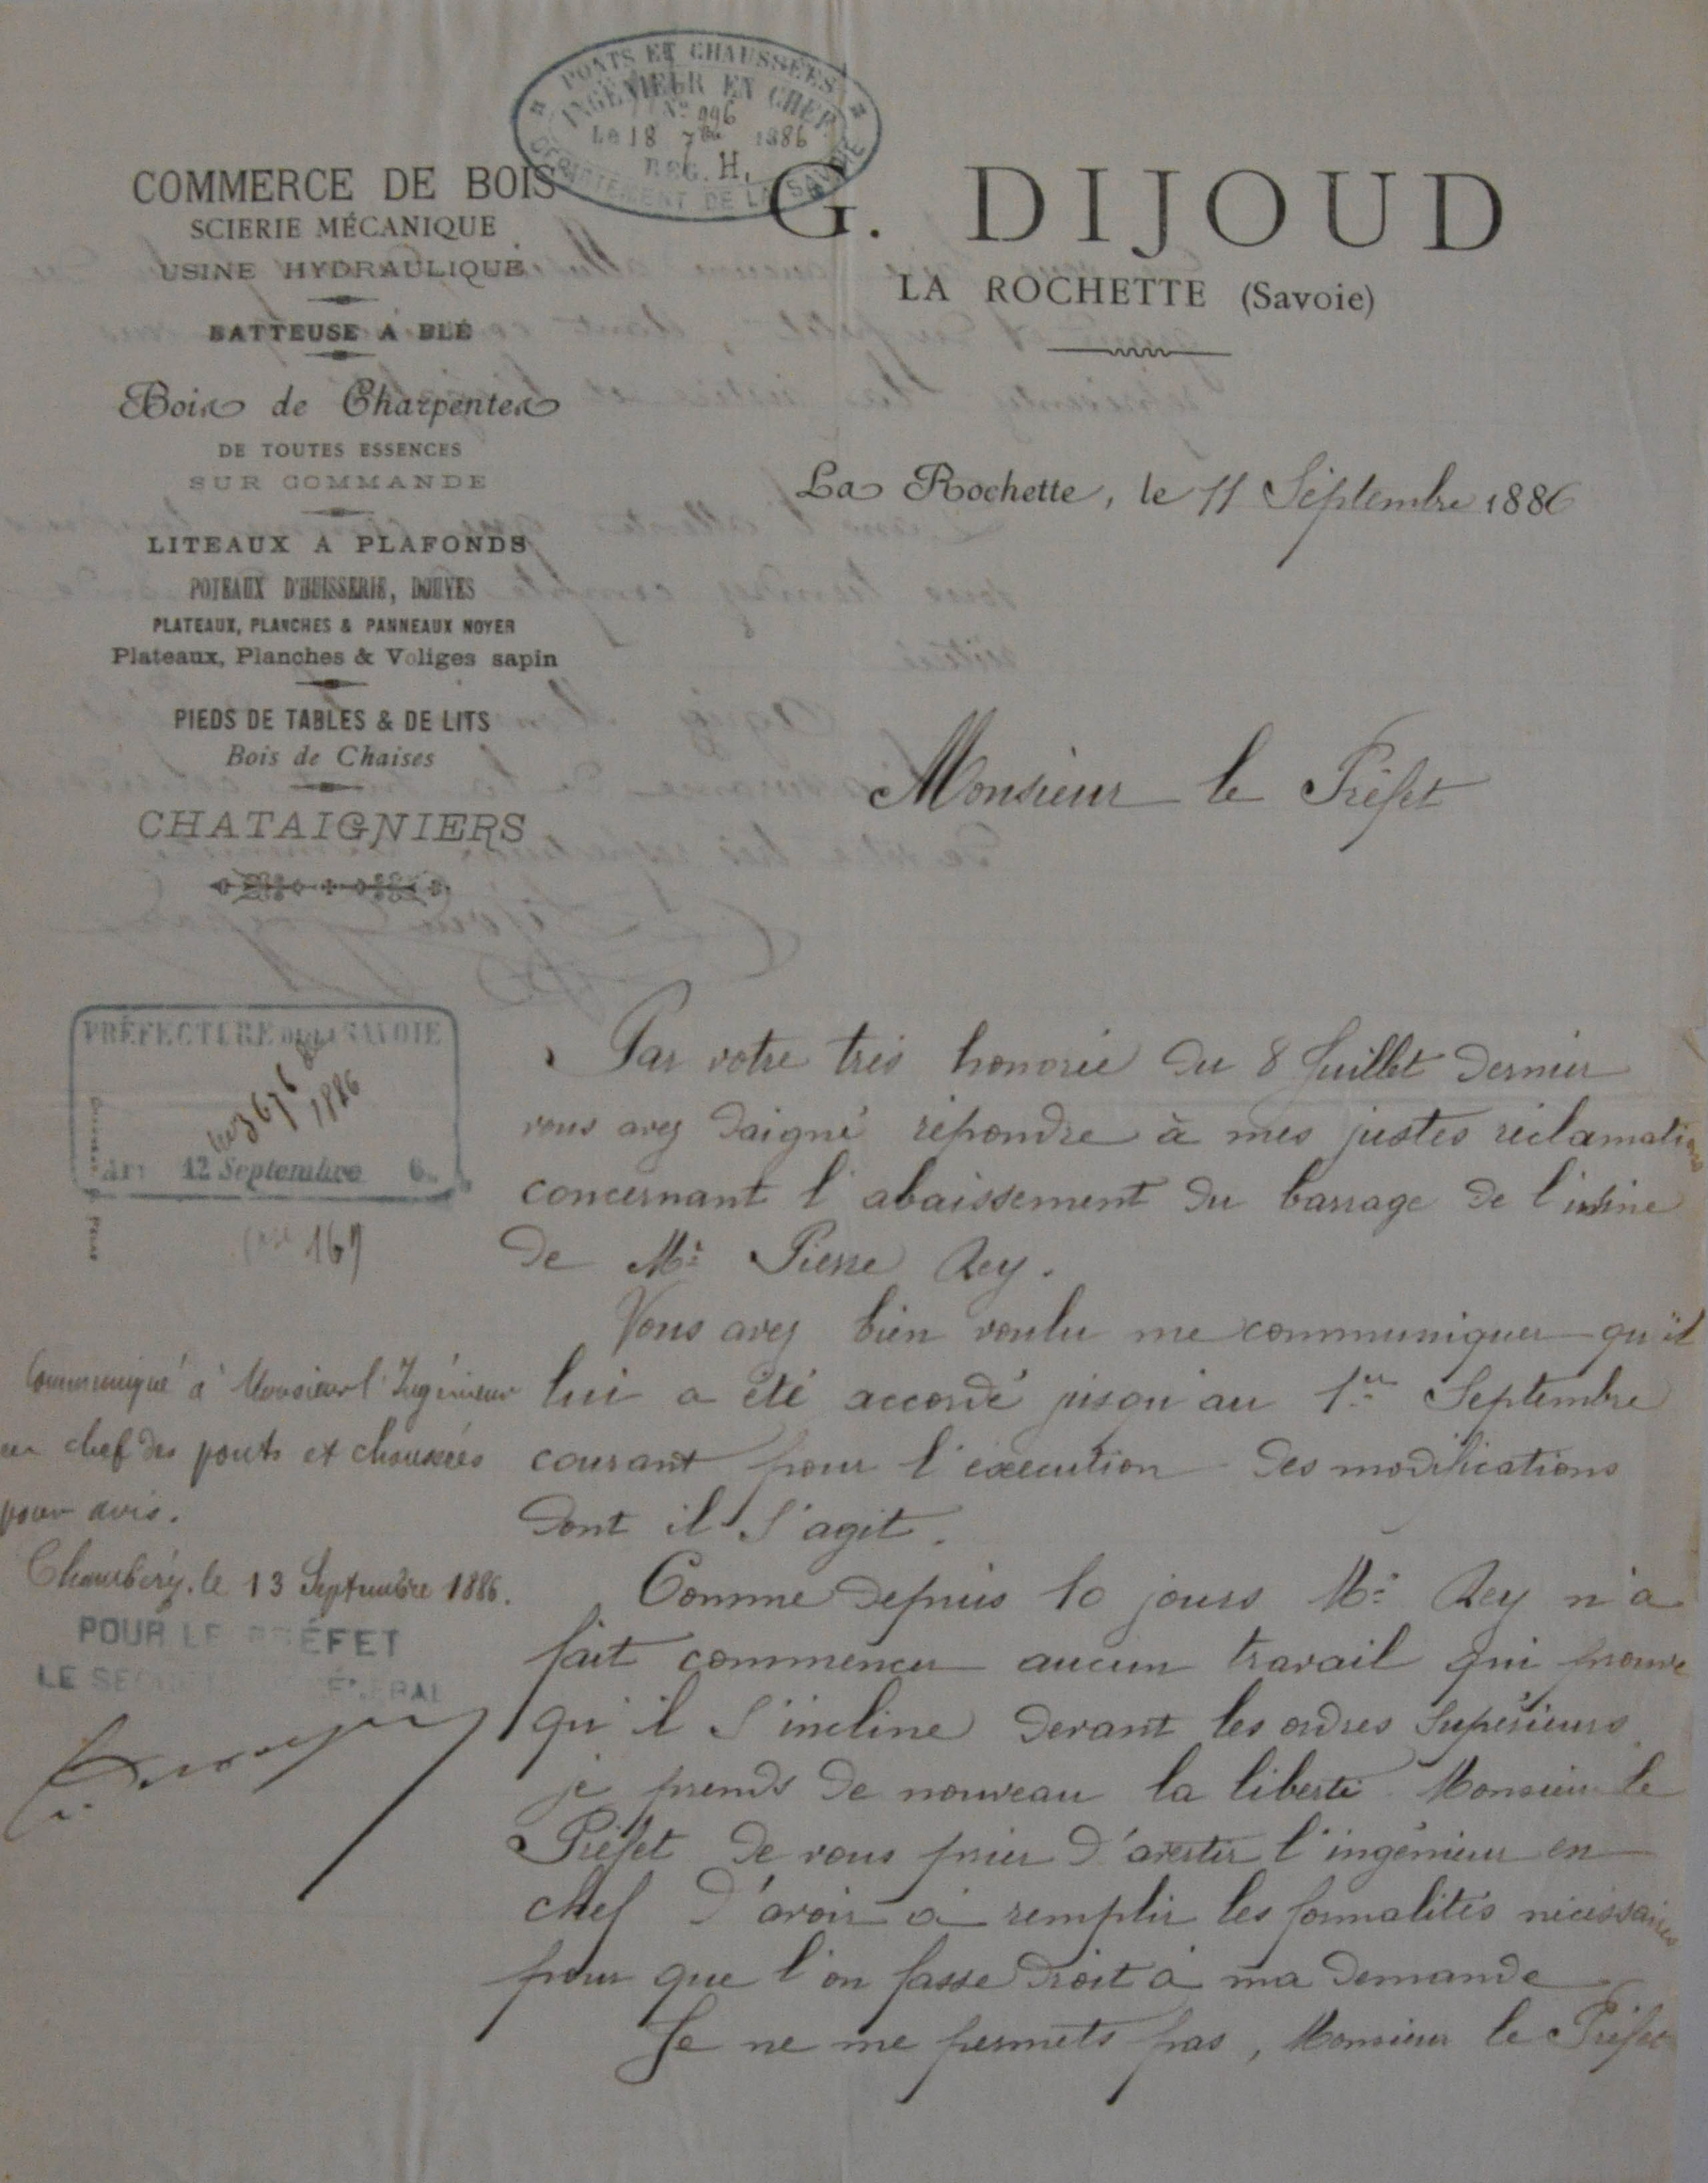 PONTS ET CHAUSSÉES
INGÉNIEUR EN CHEF
N° 996
Le 18 7bre 1886
REG. H.
DÉPARTEMENT DE LA SAVOIE
COMMERCE DE BOIS
SCIERIE MÉCANIQUE
USINE HYDRAULIQUE
BATTEUSE A BLÉ
Bois de Charpentes
DE TOUTES ESSENCES
SUR COMMANDE
LITEAUX A PLAFONDS
POTEAUX D'HUISSERIE, DOUVES
PLATEAUX, PLANCHES & PANNEAUX NOYER
Plateaux, Planches & Voliges sapin
PIEDS DE TABLES & DE LITS
Bois de Chaises
CHATAIGNIERS
G. DIJOUD
LA ROCHETTE (Savoie)
La Rochette, le 11 Septembre 1886
Monsieur le Préfet
PRÉFECTURE DE LA SAVOIE
3676
1886
12 Septembre 6
169
Communiqué à Monsieur l'Ingénieur
en chef des ponts et chaussées
pour avis.
Chambéry, le 13 Septembre 1886.
POUR LE PRÉFET
LE SECRÉTAIRE GÉNÉRAL
Par votre très honorée du 8 Juillet dernier
vous avez daigné répondre à mes justes réclamations
concernant l'abaissement du barrage de l'usine
de Mr Pierre Rey.
Vous avez bien voulu me communiquer qu'il
lui a été accordé jusqu'au 1er Septembre
courant pour l'éxecution des modifications
dont il s'agit.
Comme depuis 10 jours Mr Rey n'a
fait commencer aucun travail qui prouve
qu'il s'incline devant les ordres Supérieurs,
je prends de nouveau la liberté Monsieur le
Préfet de vous prier d'avertir l'ingénieur en
chef d'avoir à remplir les formalités nécessaires
pour que l'on fasse droit à ma demande
Je ne me permets pas, Monsieur le Préfet